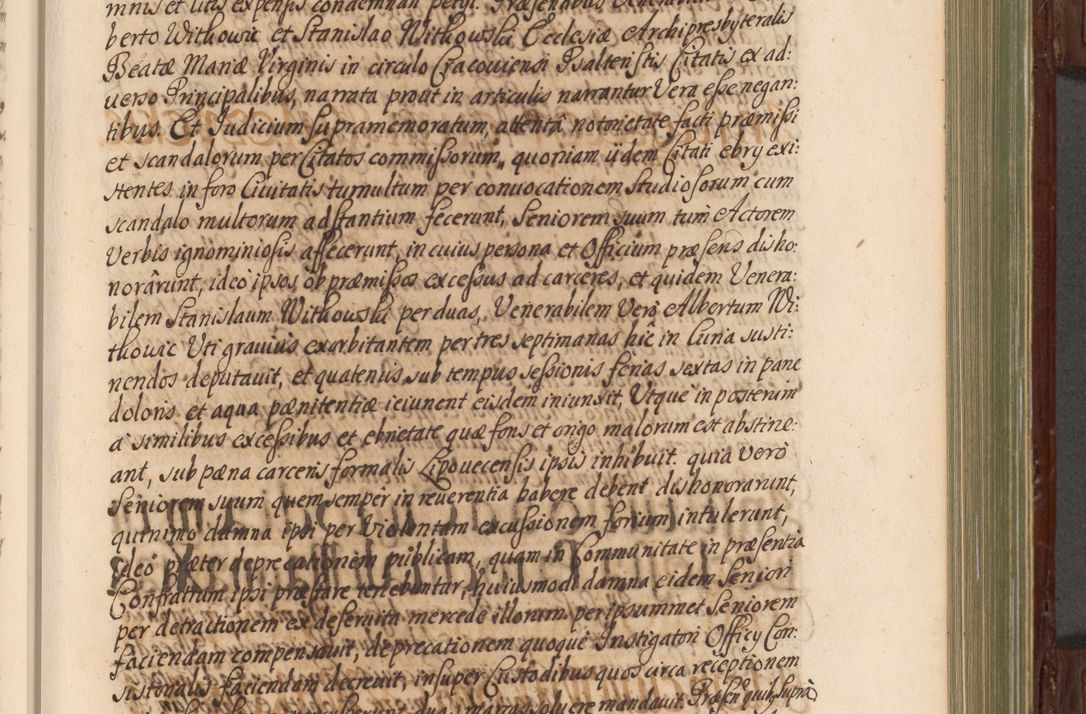 mnis et litis expensis condemnari petÿt. Præsentibus Venerabilibus
berto Withowic et Stanislao Withowski Ecclesiæ Archipresbyteralis
Beatæ Mariæ Virginis in circulo Cracoviensi Psaltenstis Citatis ex ad:
verso Principalibus, narrata prout in articulis narrantur Vera esse negan:
tibus. Et Judicium supramemoratum, attentâ notorietate facti præmissi
et scandalorum per Citatos commissorum, quoniam iidem Citati ebry exi:
stentes in foro Civitatis tumultum per convocationem Studiosorum cum
scandalo multorum adstantium fecerunt, Seniorem suum tum Actorem
Verbis ignominiosis affecerunt, in cuius persona et Officium præsens disho:
norârunt, ideò ipsos ob præmissos excessus ad carceres, et quidem Venera:
bilem Stanislaum Withowski per duas, Venerabilem Verò Albertum Wi:
thowic Uti gravius exorbitantem per tres septimanas hîc in Curia susti:
nendos deputavit, et quatenus sub tempus sessionis ferias sextas in pane
doloris et aqua pænitentiæ ieiunent eisdem iniunxit, Utque in posterum
a similibus excessibus et ebrietate quæ fons et origo malorum est abstine:
ant, sub pæna carceris formalis Lipovecensis ipsis inhibuit. quia verò
Seniorem suum quem semper in reverentia habere debent dishonorarunt,
quinimo damna ipsi per Violentam excussionem forium intulerunt,
Ideò præter deprecationem publicam, quam in Communitate in præsentia
Confratrum ipsi præstare tenebuntur, huiusmodi damna eidem Seniori
per detractionem ex deservita mercede illorum per ipsummet Seniorem
faciendam compensari, deprecationem quoque Instigatori Officÿ Con:
sistorialis faciendam decrevit, insuper Custodibus quos circa receptionem
duas marcas solvere mandavit. Præsentibus quib. Supra